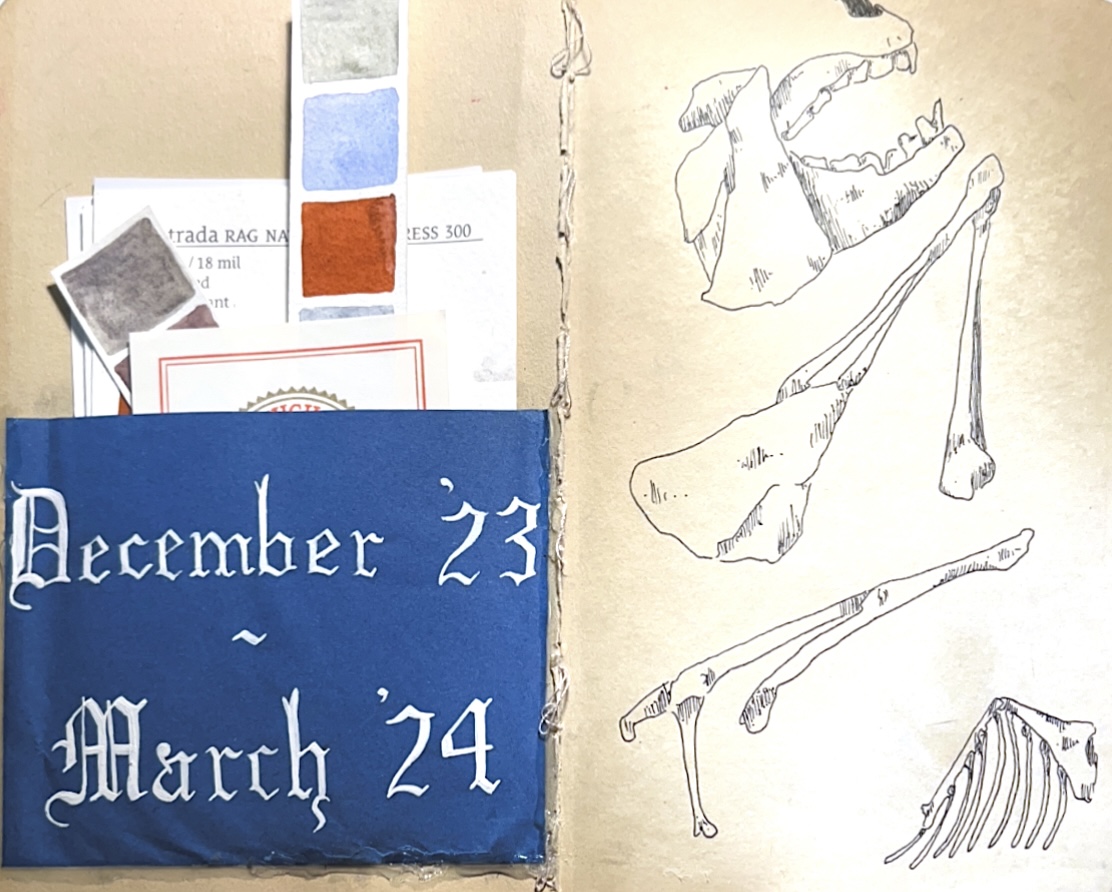 trada RAG NA RESS 300
/ 18 mil
December '23
~
March '24